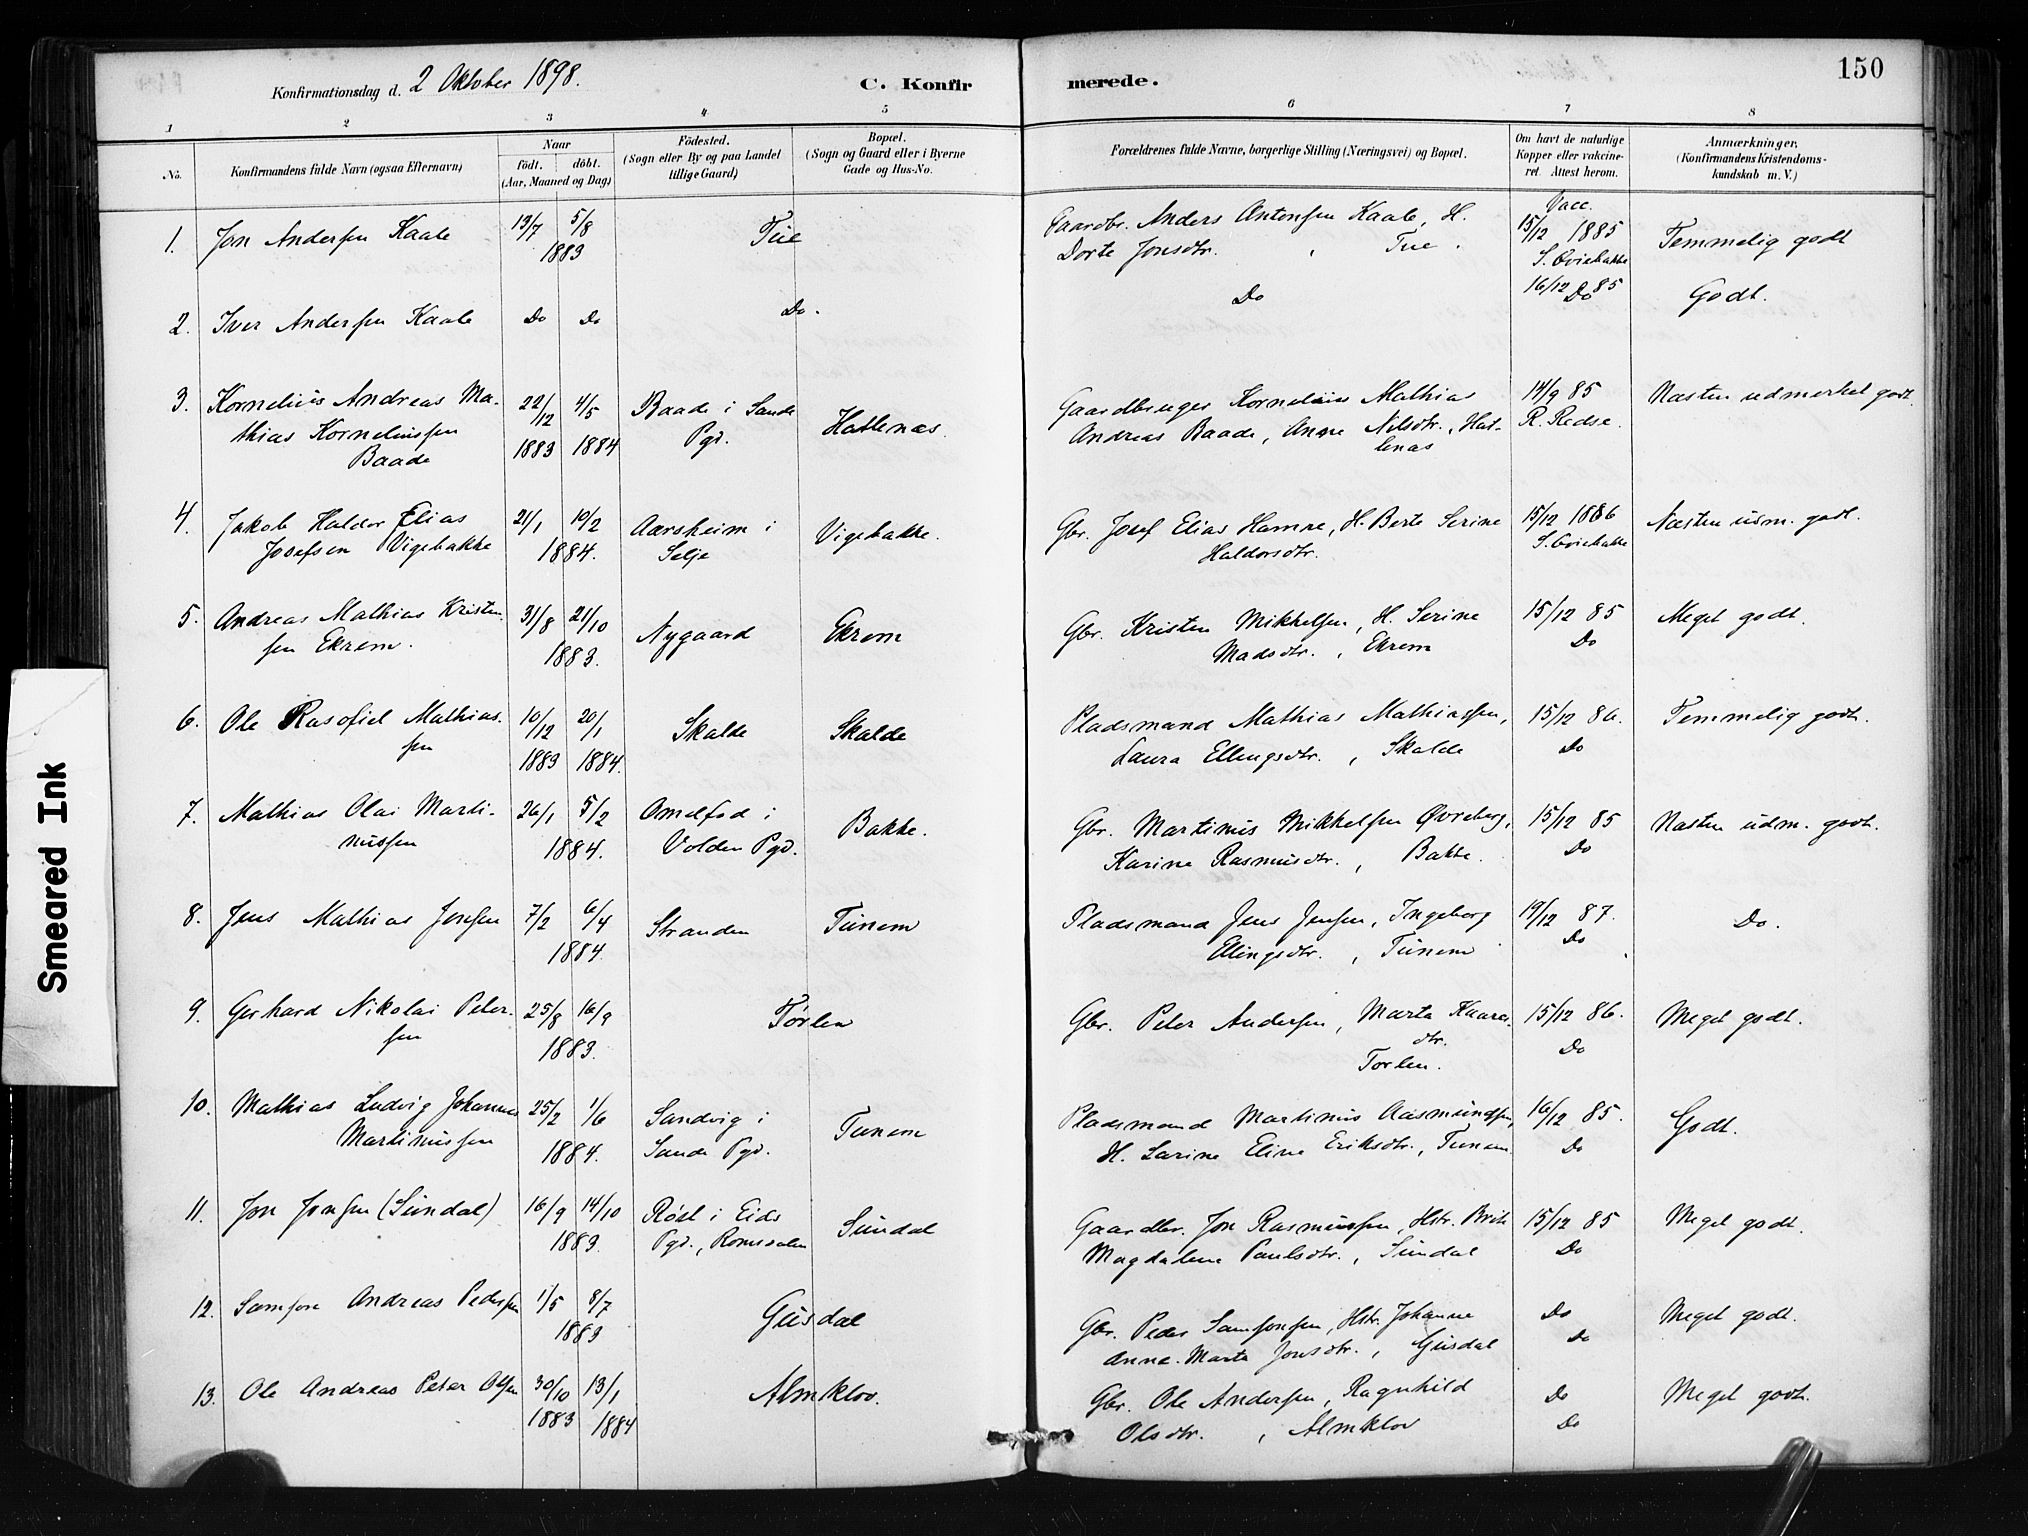 150
Konfirmationsdag d. 2 Oktober 1898.
C. Konfirmerede.
1 2 3 4 5 6 7 8
No.
Konfirmandens fulde Navn (ogsaa Efternavn)
Naar
födt. döbt.
(Aar, Maaned og Dag)
Födested.
(Sogn eller By og paa Landet
tillige Gaard)
Bopæl.
(Sogn og Gaard eller i Byerne
Gade og Hus-No.
Forældrenes fulde Navne, borgerlige Stilling (Næringsvei) og Bopæl.
Om havt de naturlige
Kopper eller vakcine-
ret. Attest herom.
Anmærkninger.
(Konfirmandens Kristendoms-
kundskab m. V.)
Vacc.
1. Jon Andersen Kaale 13/7 5/8 Tue Gaardbr. Anders Antonsen Kaale, H. 15/12 1885 Temmelig godt
1883 Dorte Jonsdtr. , Tue.
2. Iver Andersen Kaale Do Do Do. Do 16/12 85 Godt.
Do
3. Kornelius Andreas Ma- 22/12 4/5 Baade i Sande Hatlenæs. Gaardbruger Kornelius Mathias 14/9 85 Næsten udmerket godt.
thias Korneliussen 1883 1884 Pgd. Andreas Baade, Anne Nilsdtr., Hat- R. Redse.
Baade lenæs
4. Jakob Haldor Elias 21/1 10/2 Aarsheim i Vigebakke. Gbr. Josef Elias Hamre, H. Berte Serine 15/12 1886 Næsten udm. godt.
Josefsen Vigebakke 1884. Selje Haldorsdtr.
5. Andreas Mathias Kristen 31/8 21/10 Nygaard Ekrem Gbr. Kristen Mikkelsen, H. Serine 15/12 85 Meget godt.
sen Ekrem. 1883. Madsdtr. , Ekrem Do
6. Ole Rasofiel Mathias- 10/12 20/1 Skalde Skalde Pladsmand Mathias Mathiassen, 15/12 86. Temmelig godt.
sen 1883 1884. Laura Ellingsdtr. , Skalde Do
7. Mathias Olai Marti- 26/1 5/2 Omelfod i Bakke. Gbr. Martinus Mikkelsen Øvreberg, 15/12 85 Næsten udm. godt.
nussen 1884. Volden Pgd. Karine Rasmusdtr. , Bakke. Do
8. Jens Mathias Jensen 7/2 6/4 Stranden Tunem Pladsmand Jens Jensen, Ingeborg 19/12 87. Do.
1884. Ellingsdtr. , Tunem Do
9. Gerhard Nikolai Peter- 25/8 16/9 Tørlen Gbr. Peter Andersen, Marta Kaares- 15/12 86. Meget godt.
sen 1883. dtr. Do
Tørlen.
10. Mathias Ludvig Johannes 25/2 1/6 Sandvig i Tunem Pladsmand Martinus Aasmundsen, 16/12 85. Godt.
Martinussen 1884. Sande Pgd. H. Larine Eline Eriksdtr., Tunem. Do
11. Jon Jonsen (Sundal) 16/9 14/10 Rødl i Eids Sundal Gaardbr. Jon Rasmussen, Hstr. Brit 15/12 85 Meget godt.
1883. Pgd., Romsdalen Magdalene Paulsdtr. , Sundal Do
12. Samson Andreas Pedersen 1/5 8/7 Gusdal Gbr. Peder Samsonsen, Hstr. Johanne Do Meget godt.
1883 Anne-Marta Jonsdtr. , Gusdal Do
13. Ole Andreas Peter Olsen 30/10 13/1 Almklov. Gbr. Ole Andersen, Ragnhild Do Meget godt.
1883 1884 Olsdtr. , Almklov Do
Smeared Ink